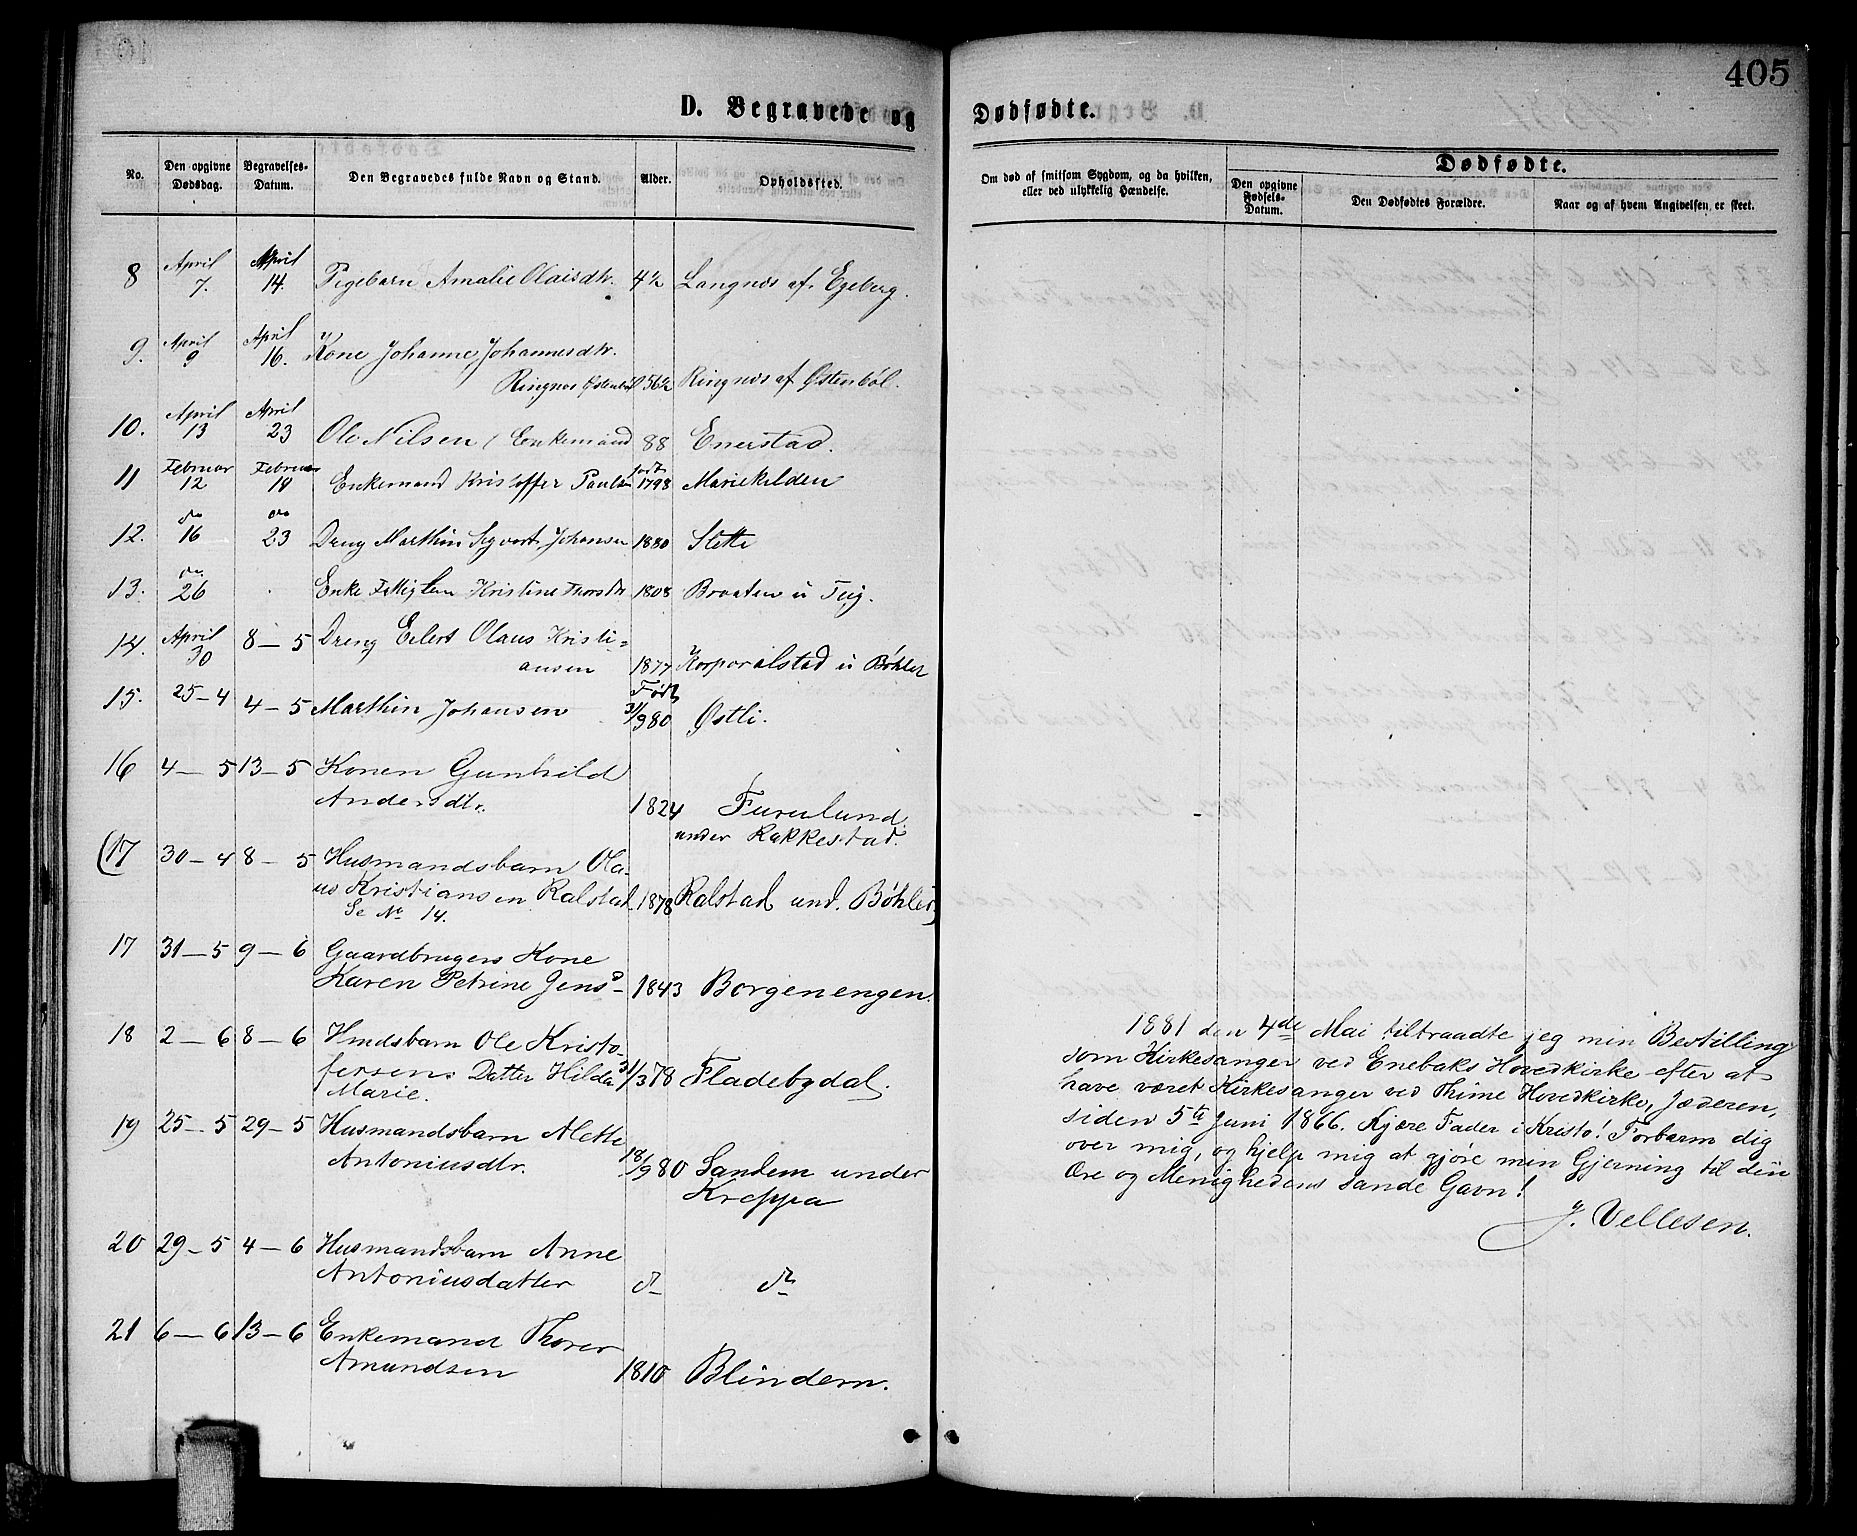 405
D. Begravede og Dødfødte.
No.
Den opgivne Dødsdag.
Begravelses-Datum.
Den Begravedes fulde Navn og Stand.
Alder.
Opholdssted.
Om død af smitsom Sygdom, og da hvilken, eller ved ulykkelig Hændelse.
Dødfødte.
Den opgivne Fødsels-Datum.
Den Dødfødtes Forældre.
Naar og af hvem Angivelsen er skeet.
8 April 7. April 14. Pigebarn Amalie Olaisdtr. 4½ Langnæs af Egeberg.
9. April 9 April 16. Kone Johanne Johannesdtr.
Ringnæs Østenbøl 56½ Ringnæs af Østenbøl.
10. April 13 April 23 Ole Nilsen (Enkemand 88 Enerstad.
11 Februar 12 Februar 19 Enkemand Kristoffer Paulsen født 1798 Mariekilden
12. do 16 do 23 Dreng Marthin Sigvart Johansen 1880 Slette
13. do 26 Enke Fattiglem Kristine Thorsdtr 1808 Braaten u Teig.
14. April 30 8-5 Dreng Eilert Olaus Kristi-
ansen 1877 Korporalstad u Bøhler
15. 25-4 4-5 Marthin Johansen Født 31/9 80 Østli.
16 4-5 13-5 Konen Gunhild
Andersdtr. 1824 Furulund
under Rakkestad.
(17 30-4 8-5 Husmandsbarn Ola-
us Kristiansen Ralstad 1878 Ralstad und. Bøhler)
Se No 14.
17 31-5 9-6 Gaardbrugers Kone
Karen Petrine Jens- 1843 Borgenengen.
18 2-6 8-6 Hmdsbarn Ole Kristo-
fersens Datter Hilda 31/3 78 Fladebydal.
Marie.
19 25-5 29-5 Husmandsbarn Alette
Antoniusdtr. 18/9 80 Sandem under
Kreppa
20 29-5 4-6 Husmandsbarn Anne
Antoniusdatter do do
21 6-6 13-6 Enkemand Thorer
Amundsen 1810 Blindern.
1881 den 4de Mai tiltraadte jeg min Bestilling
som Kirkesanger ved Enebaks Hovedkirke efter at
have været Kirkesanger ved Thime Hovedkirke, Jæderen,
siden 5te Juni 1866. Kjære Fader i Kristo! Forbarm dig
over mig, og hjelp mig at gjøre min Gjerning til din
Ære og Menighedens sande Gavn!
J. Vellesen.